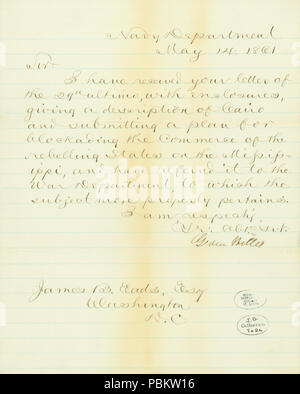 Navy Department
May 14. 1861
Sir
I have received your letter of
the 29th ultimo, with enclosures,
giving a description of Cairo
and submitting a plan for
blockading the Commerce of the
rebelling States on the Missis-
ippi, and have referred it to the
War Department to which the
subject more properly pertains.
I am, respecty,
Yr. Obt. Svt.
Gideon Welles
James B. Eads, Esq
Washington
D.C
alamy
PBKW16